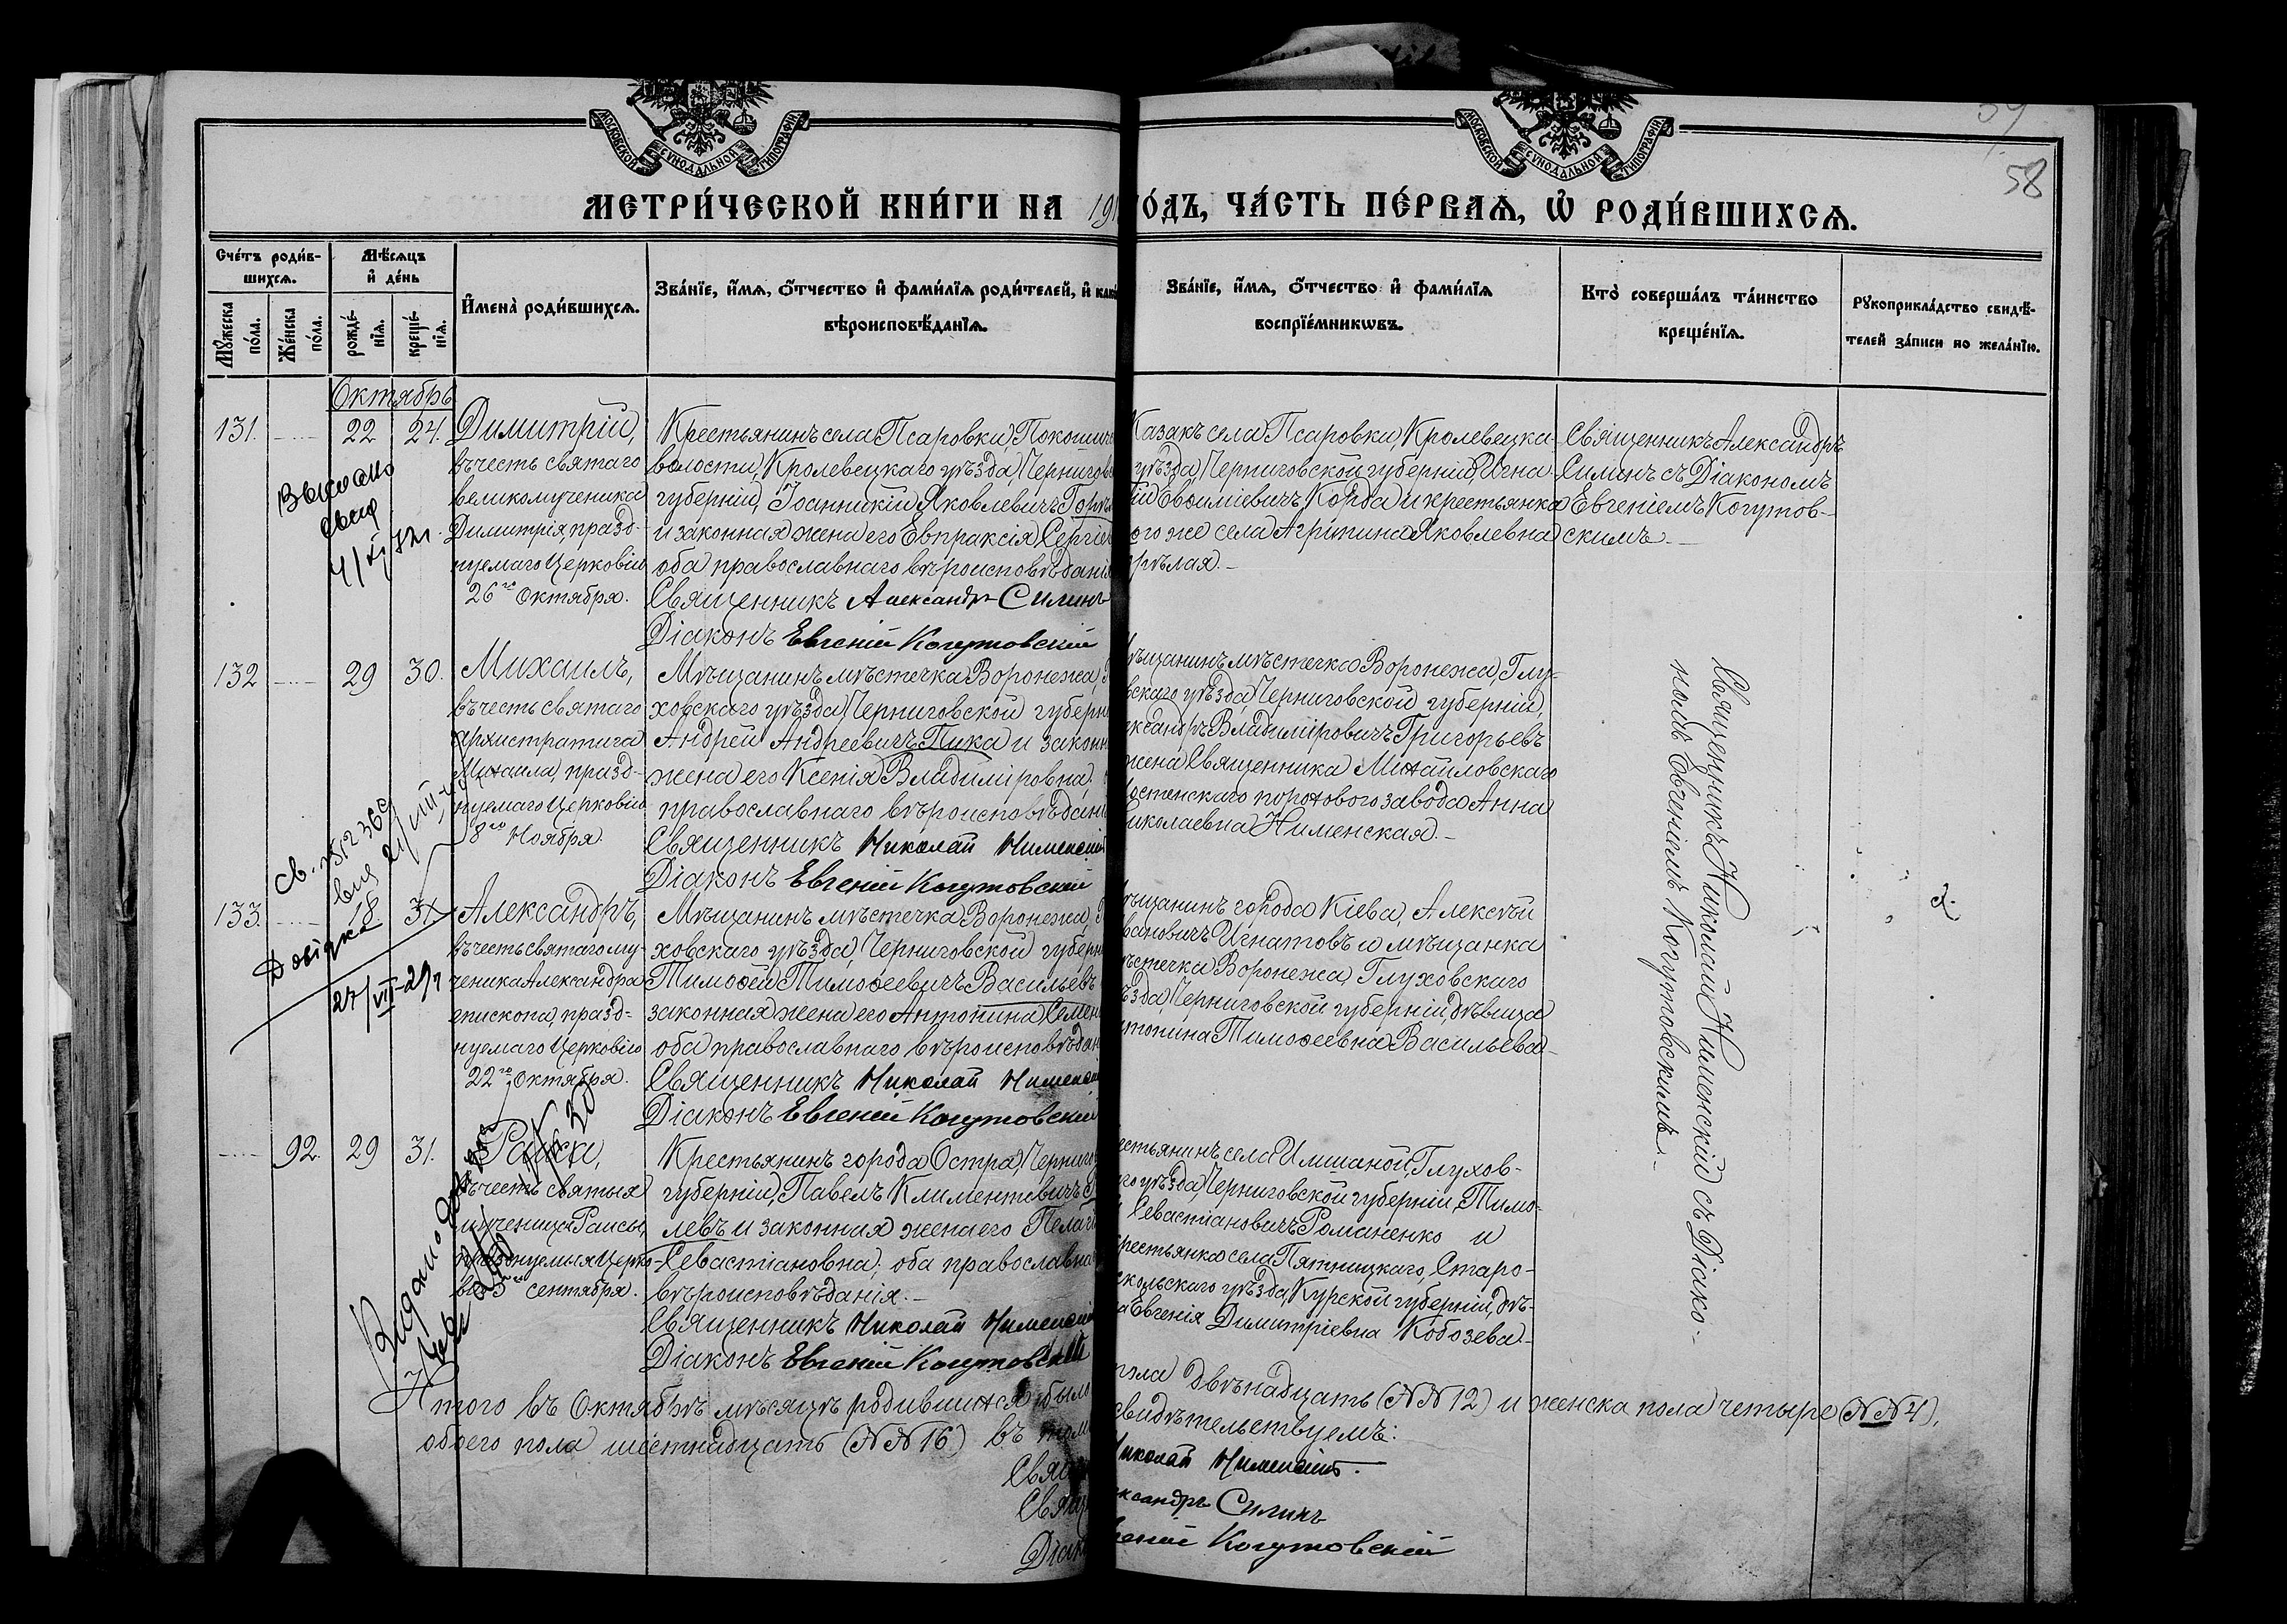 МОСКОВСКОЙ СѴНОДАЛЬНОЙ ТИПОГРАФІИ
МОСКОВСКОЙ СѴНОДАЛЬНОЙ ТИПОГРАФІИ
58
МЕТРИ́ЧЕСКОЙ КНИ́ГИ НА 191
О́ДЪ, ЧА́СТЬ ПЕ́РВАѦ, Ѡ҆ РОДИ́ВШИХСѦ.
Сче́тъ роди́в-
шихсѧ.
Мѣ́сѧцъ
и҆ де́нь
Мꙋ́жеска по́ла.
Же́нска по́ла.
рожде́-нїѧ.
креще́-нїѧ.
И҆мена̀ роди́вшихсѧ.
Зва́нїе, и҆́мѧ, ѻ҆́тчество и҆ фами́лїѧ роди́телей, и҆
вѣроисповѣ́данїѧ.
Зва́нїе, и҆́мѧ, ѻ҆́тчество и҆ фами́лїѧ
воспрїе́мникѡвъ.
Кто̀ соверша́лъ та́инство
креще́нїѧ.
Рꙋкоприкла́дство свидѣ́-
телей за́писи по жела́нїю.
Октябрь
131.
22
24.
Димитрій,
въ честь святаго
великомученика
Димитрія, празд-
нуемаго Церковію
26го Октября.
Крестьянинъ села Псаровки, Покошич
волости, Кролевецкаго уѣзда, Чернигов
губерніи, Іоанникій Яковлевичъ Горѣ
и законная жена его Евпраксія Сергіев
оба православнаго вѣроисповѣданія
Священникъ Александръ Силинъ
Діаконъ Евгеній Когутовскій
Казакъ села Псаровки, Кролевецка
уѣзда, Черниговской губерніи, Игна
ій Евѳиміевичъ Корда и крестьянка
ого же села Агрипина Яковлевна
рѣлая.
Священникъ Александръ
Силинъ съ Діакономъ
Евгеніемъ Когутов-
скимъ.
132
29
30.
Михаилъ,
въ честь святаго
Архистратига
Михаила, празд-
нуемаго Церковію
8го Ноября.
Мѣщанинъ мѣстечка Воронежа,
ховскаго уѣзда, Черниговской губерн
Андрей Андреевичъ Пика и законн
жена его Ксенія Владиміровна,
православнаго вѣроисповѣдані
Священникъ Николай Нименскій
Діаконъ Евгеній Когутовскій
ѣщанинъ мѣстечка Воронежа, Глу-
вскаго уѣзда, Черниговской губерніи,
ександръ Владиміровичъ Григорьевъ
жена Священника Михайловскаго
остенскаго порохового завода Анна
иколаевна Нименская.
Священникъ Николай Нименскій съ Діако-
номъ Евгеніемъ Когутовскимъ.
133.
31
Александръ,
въ честь святаго му-
ченика Александра
епископа, празд-
нуемаго Церковію
22го Октября.
Мѣщанинъ мѣстечка Воронежа,
ховскаго уѣзда, Черниговской губерн
Тимоѳей Тимоѳеевичъ Васильевъ
законная жена его Антонина Семен
оба православнаго вѣроисповѣдан
Священникъ Николай Нименскій
Діаконъ Евгеній Когутовскій
ѣщанинъ города Кіева, Алексѣй
вановичъ Игнатовъ и мѣщанка
ѣстечка Воронежа, Глуховскаго
ѣзда, Черниговской губерніи, дѣвица
нтонина Тимоѳеевна Васильева
92.
29
31.
Раиса,
въ честь святыя
мученицы Раисы,
празднуемыя Церко-
вію 5го сентября.
Крестьянинъ города Остра, Черниго
губерніи, Павелъ Климентіевичъ
левъ и законная жена его Пелагі
Севастіановна; оба православна
вѣроисповѣданія.
Священникъ Николай Нименскій
Діаконъ Евгеній Когутовскій
естьянинъ села Имшаной, Глухов-
го уѣзда, Черниговской губерніи, Тимо-
Севастіановичъ Романенко и
рестьянка села Пятницкаго, Старо-
скольскаго уѣзда, Курской губерніи, дѣ-
а Евгенія Димитріевна Кобозева
Итого въ Октябрѣ мѣсяцѣ родившихся было
пола двѣнадцать (№№ 12) и женска пола четыре (№№ 4),
обоего пола шестнадцать (№№ 16) въ том
свидѣтельствуемъ:
Свящ
Николай Нименскій.
Свящ
ександръ Силинъ
Діак
геній Когутовскій